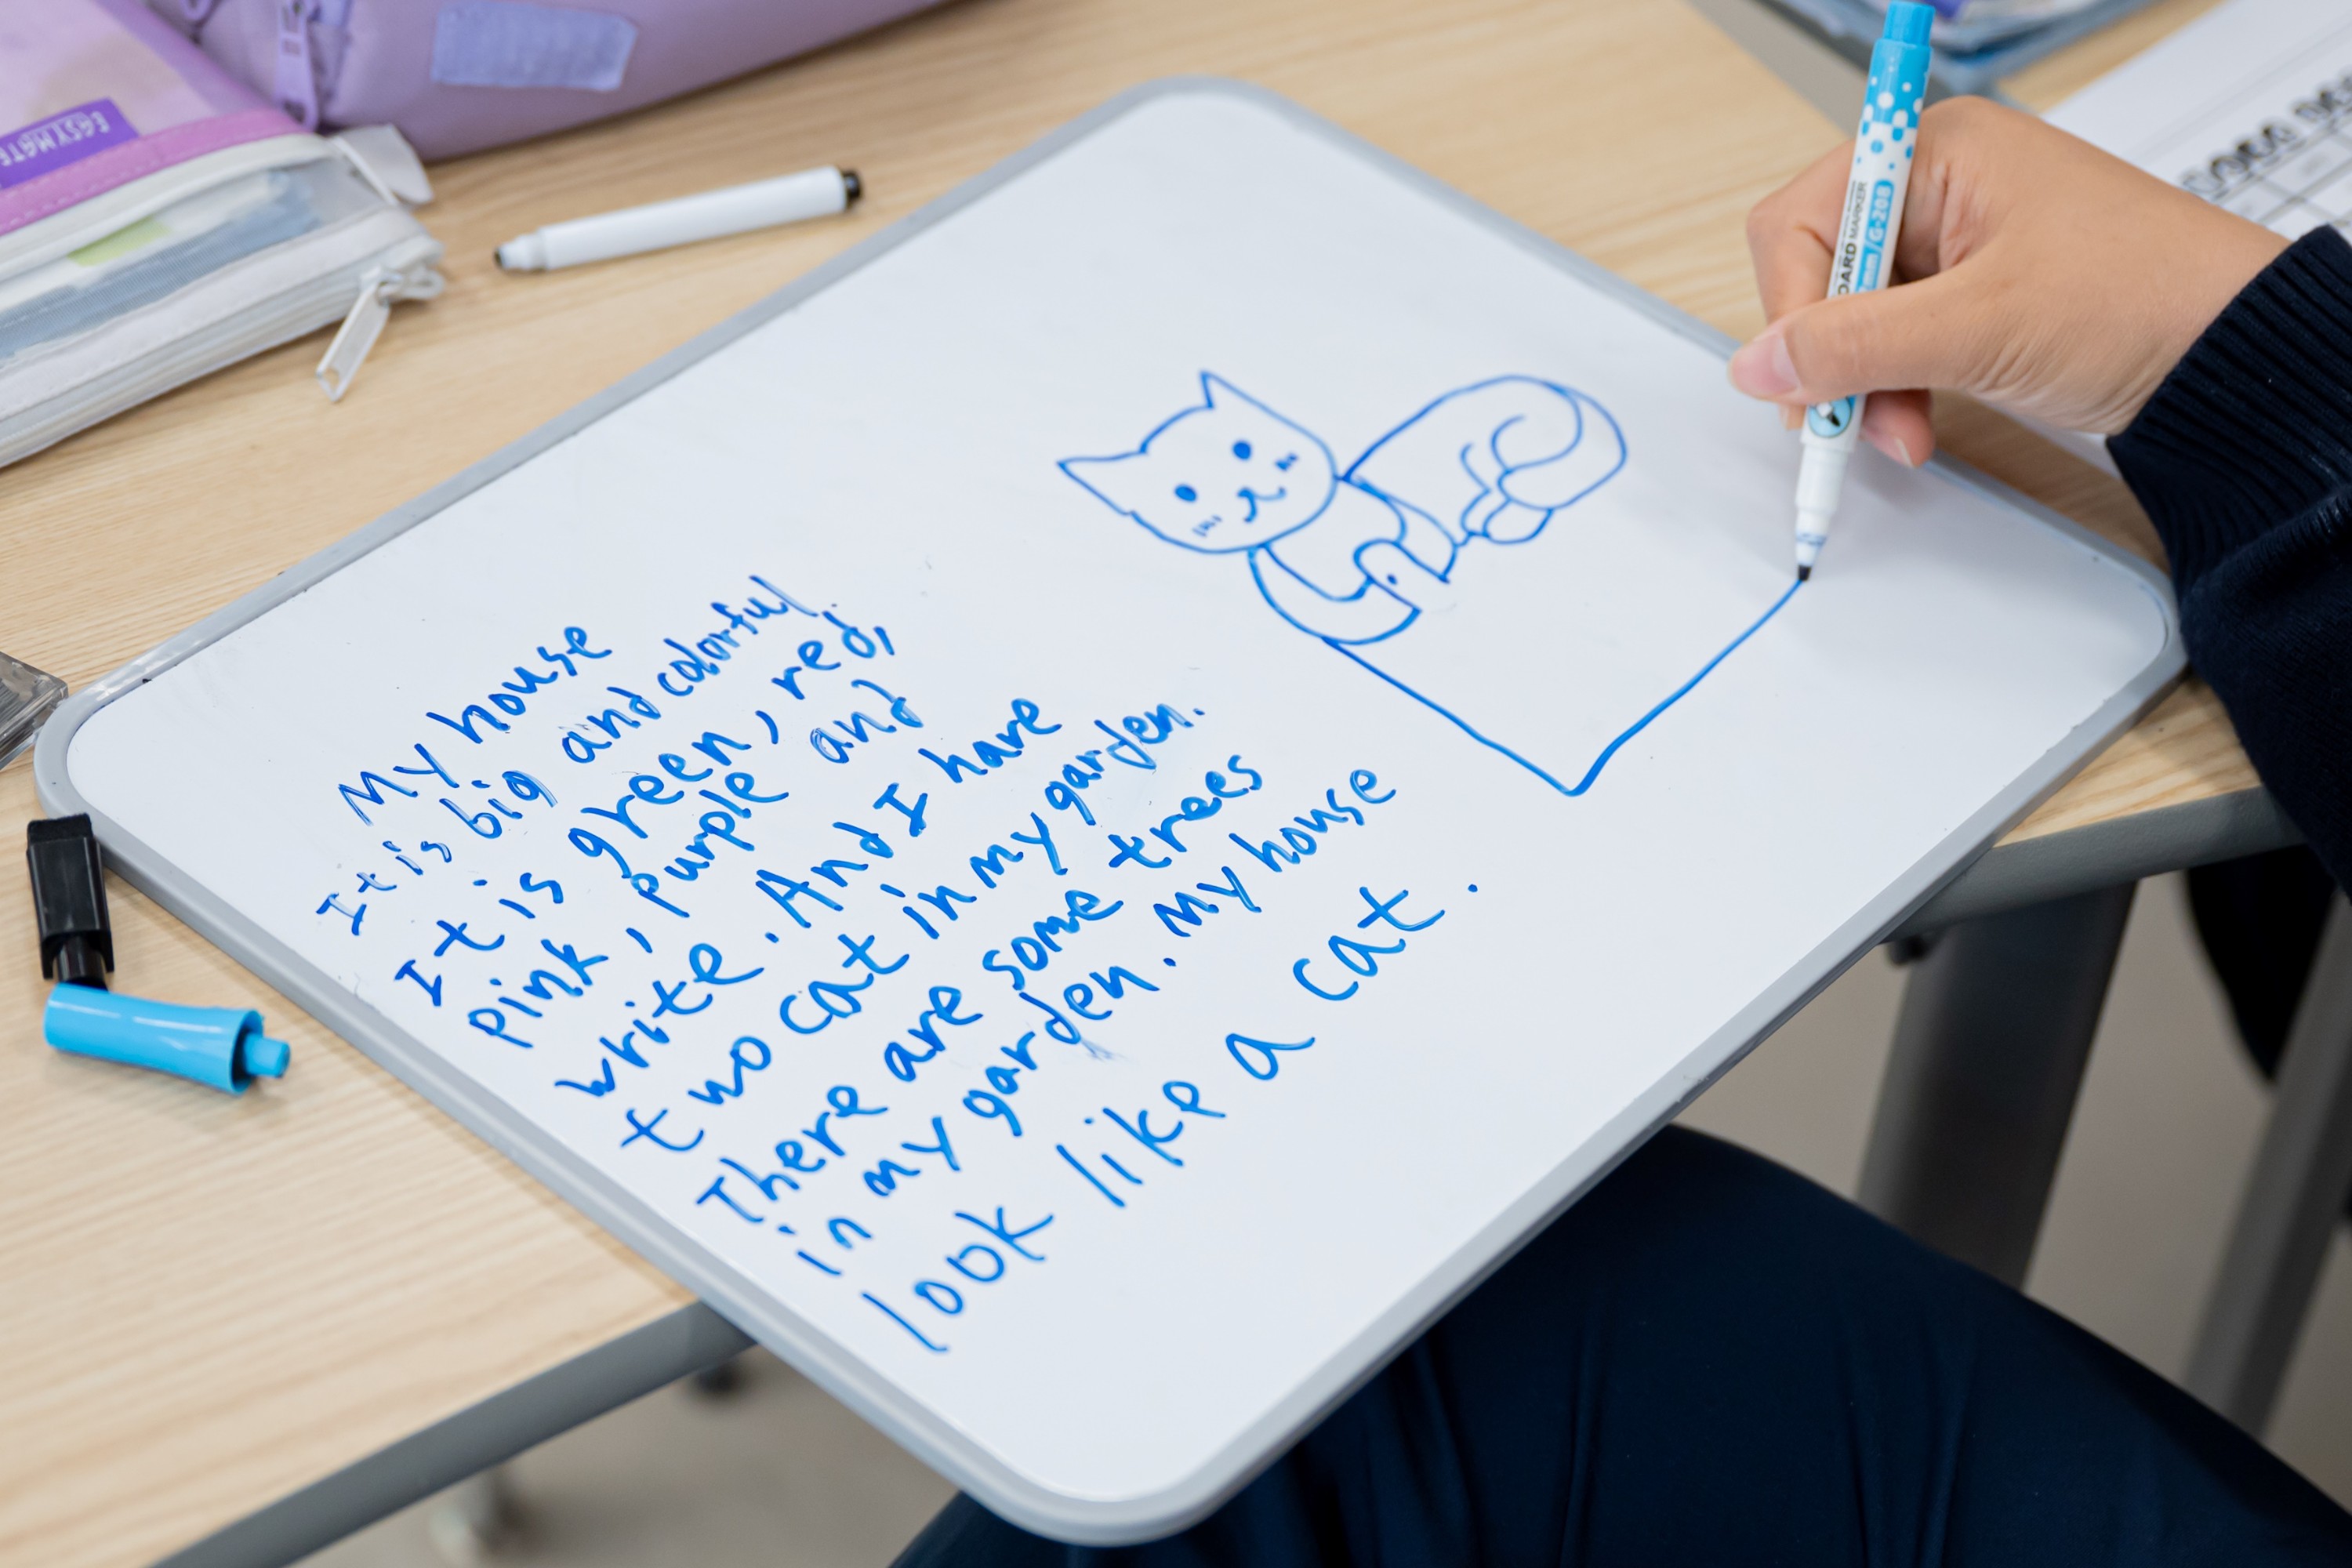 My house
It is big and colorful.
It is green, red,
pink, purple and
write. And I have
two cat in my garden.
There are some trees
in my garden. my house
look like a cat.
EASYMATE
MARKER
G-208